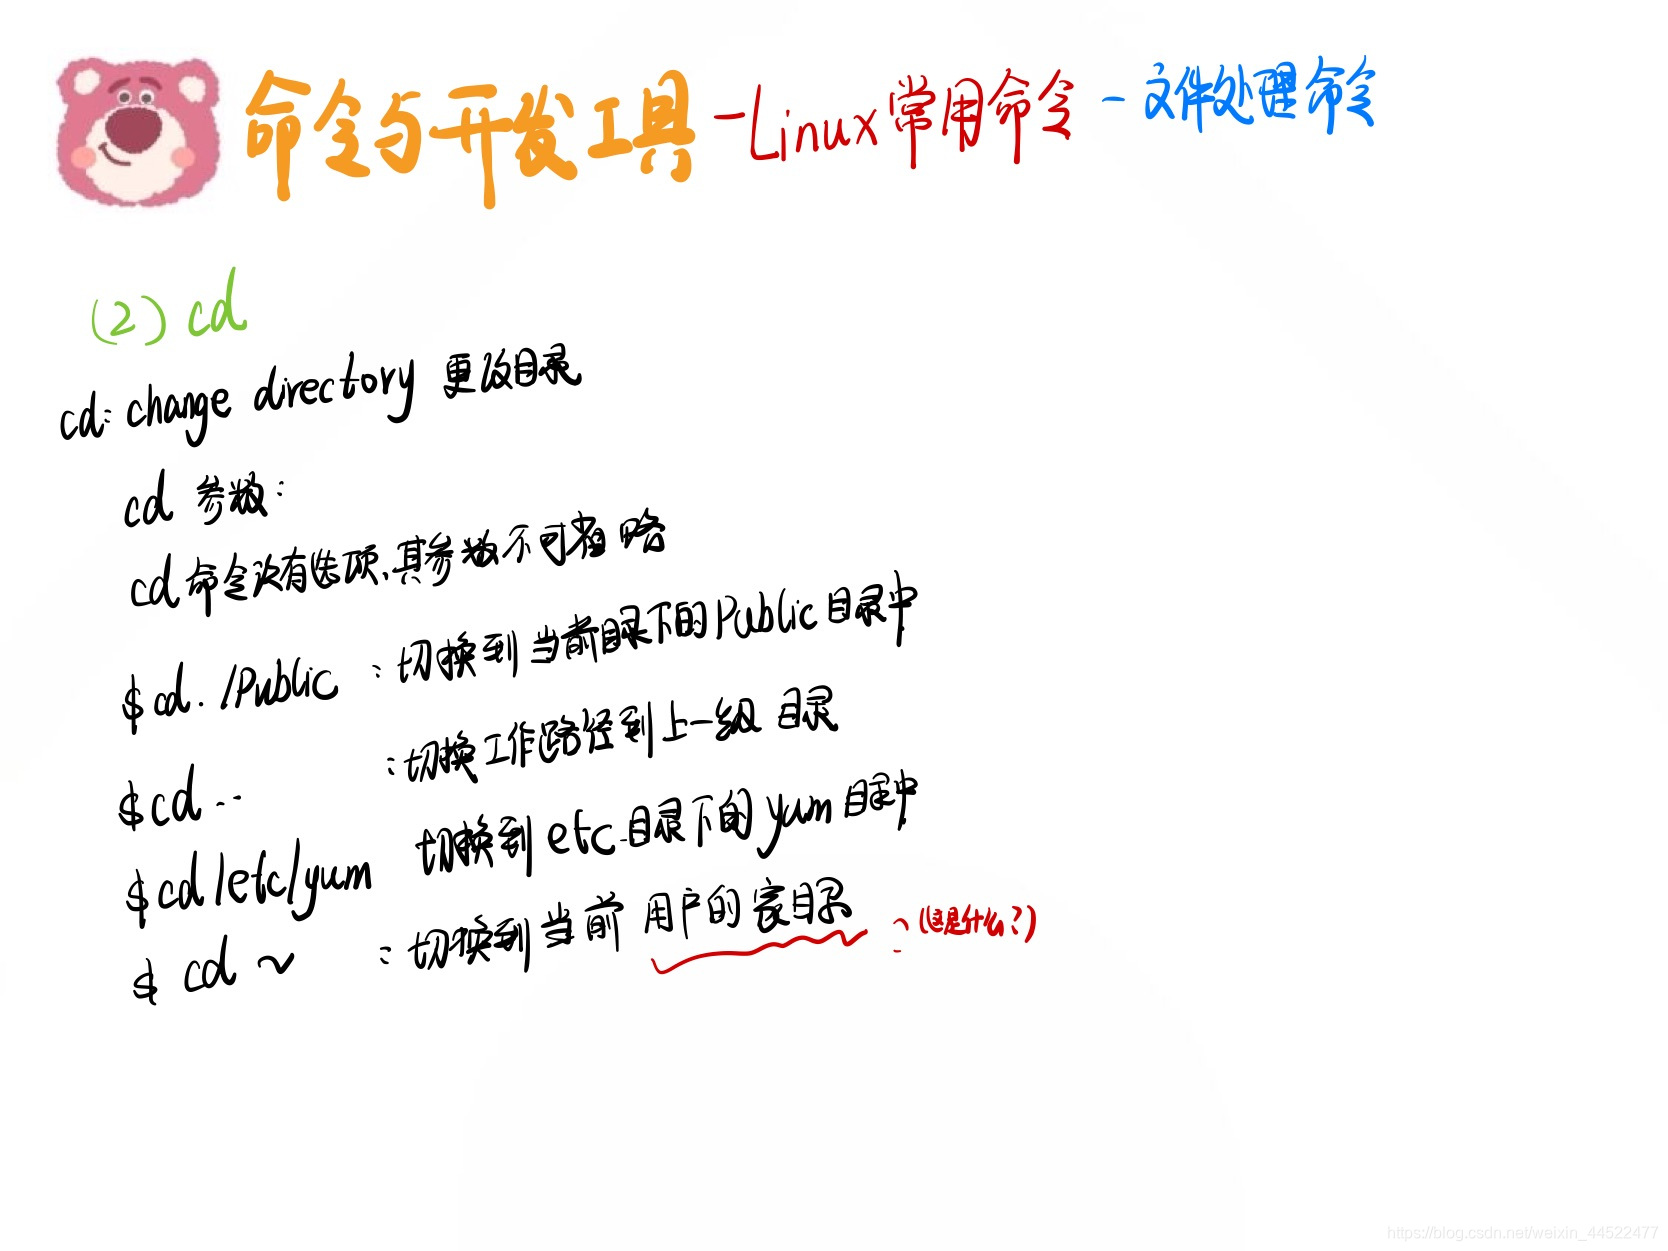 命令与开发工具-Linux常用命令-文件处理命令
(2) cd
cd: change directory 更改目录
cd 参数:
cd命令没有选项,其参数不可省略
$ cd ./Public : 切换到当前目录下的Public目录中
$ cd .. : 切换工作路径到上一级目录
$ cd /etc/yum 切换到etc目录下的yum目录中
$ cd ~ : 切换到当前用户的家目录 (这是什么?)
https://blog.csdn.net/weixin_44522477